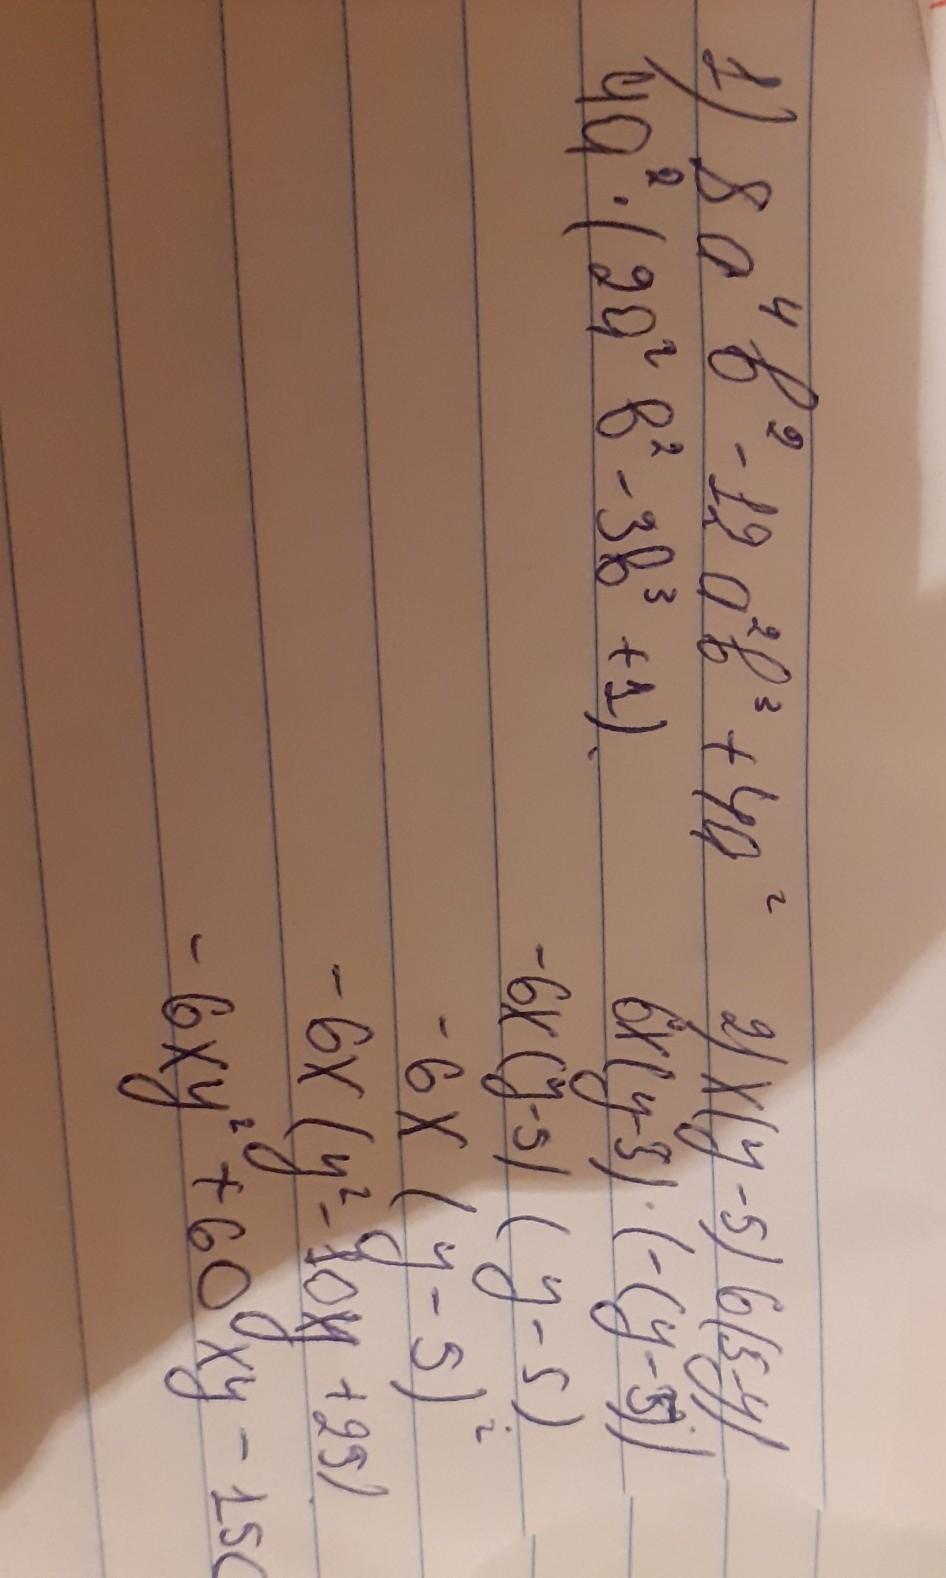 1) 8a⁴b² - 12a²b³ + 4a²
4a² · (2a²b² - 3b³ + 1).
2) x(y - 5) 6(5-y)
6x(y-5) · (-(y-5))
-6x(y-5) (y - 5)
-6x (y - 5)²
-6x (y² - 10y + 25)
-6xy² + 60xy - 150